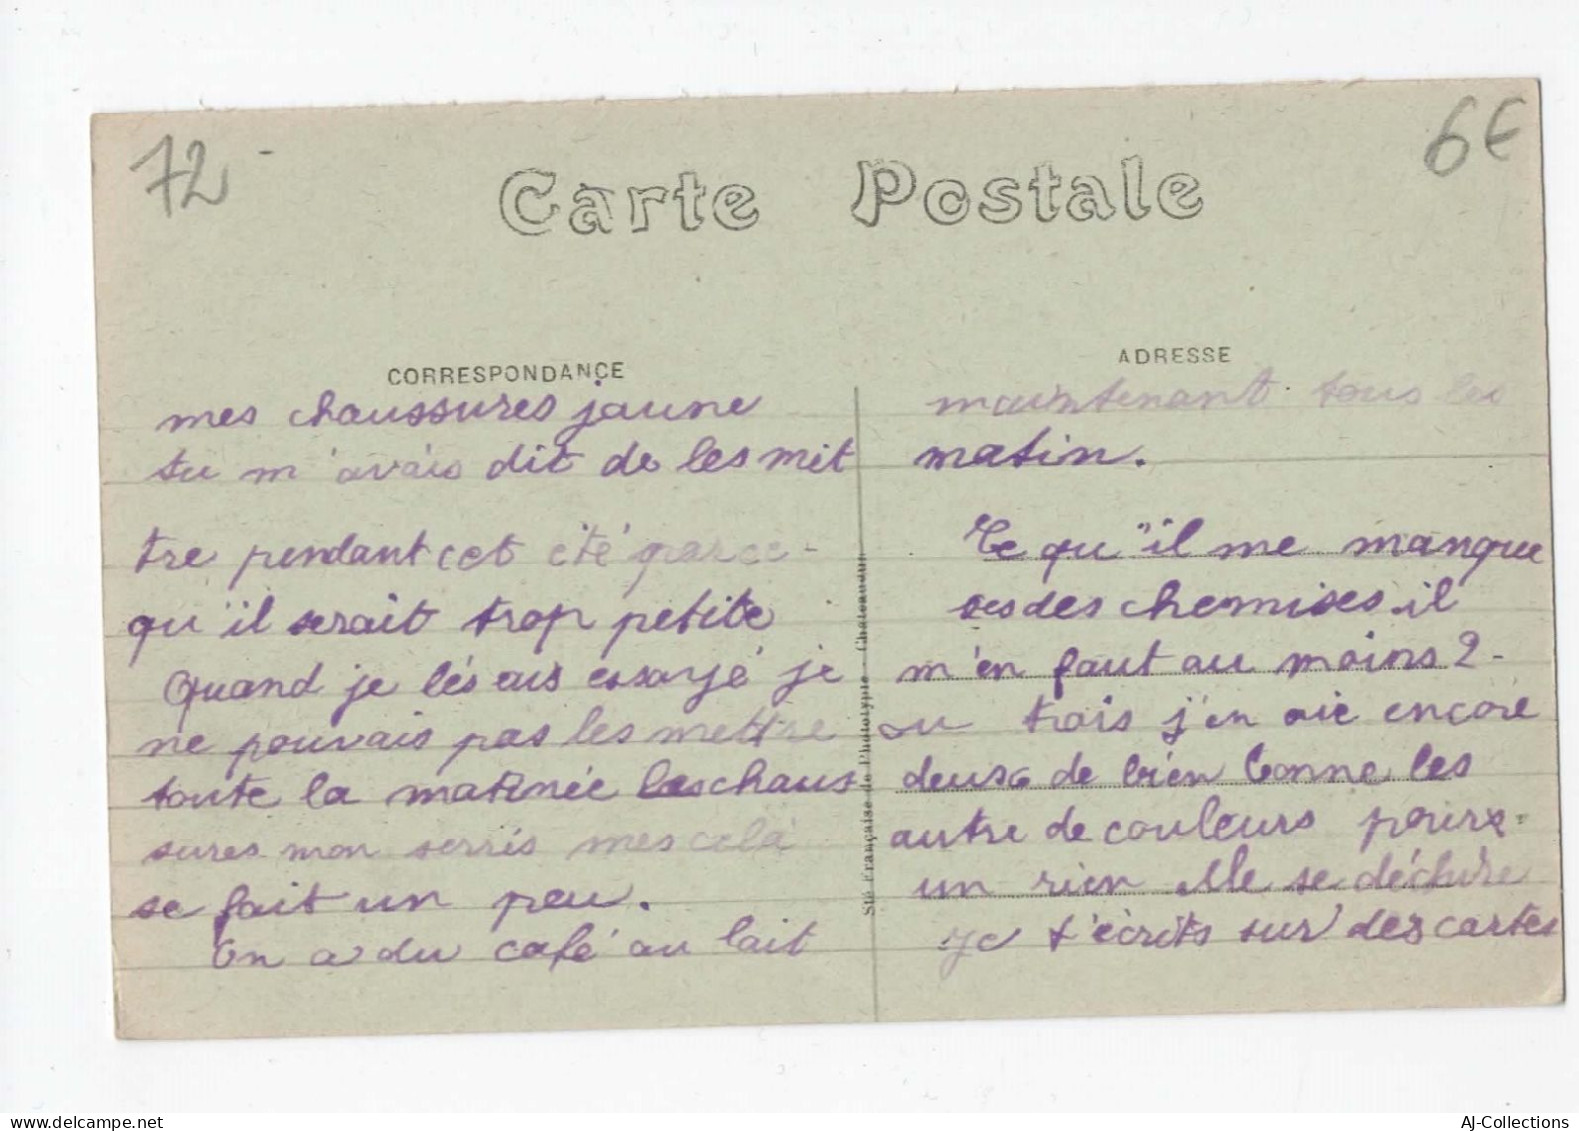 72
6€
Carte Postale
CORRESPONDANCE
mes chaussures jaune
tu m'avais dit de les met
tre pendant cet été parce-
qu'il serait trop petite
Quand je lés ais essayé je
ne pouvais pas les mettre
toute la matinée les chaus
sures mon serrés mes celà
se fait un peu.
On a du café au lait
Sté Française de Phototypie - Chateaudun
ADRESSE
maintenant tous les
matin.
Ce qu'il me manque
ses des chemises il
m'en faut au moins 2-
ou trois j'en aie encore
deuse de bien bonne les
autre de couleurs pour
un rien elle se déchire
je t'écrits sur des cartes
AJ-Collections